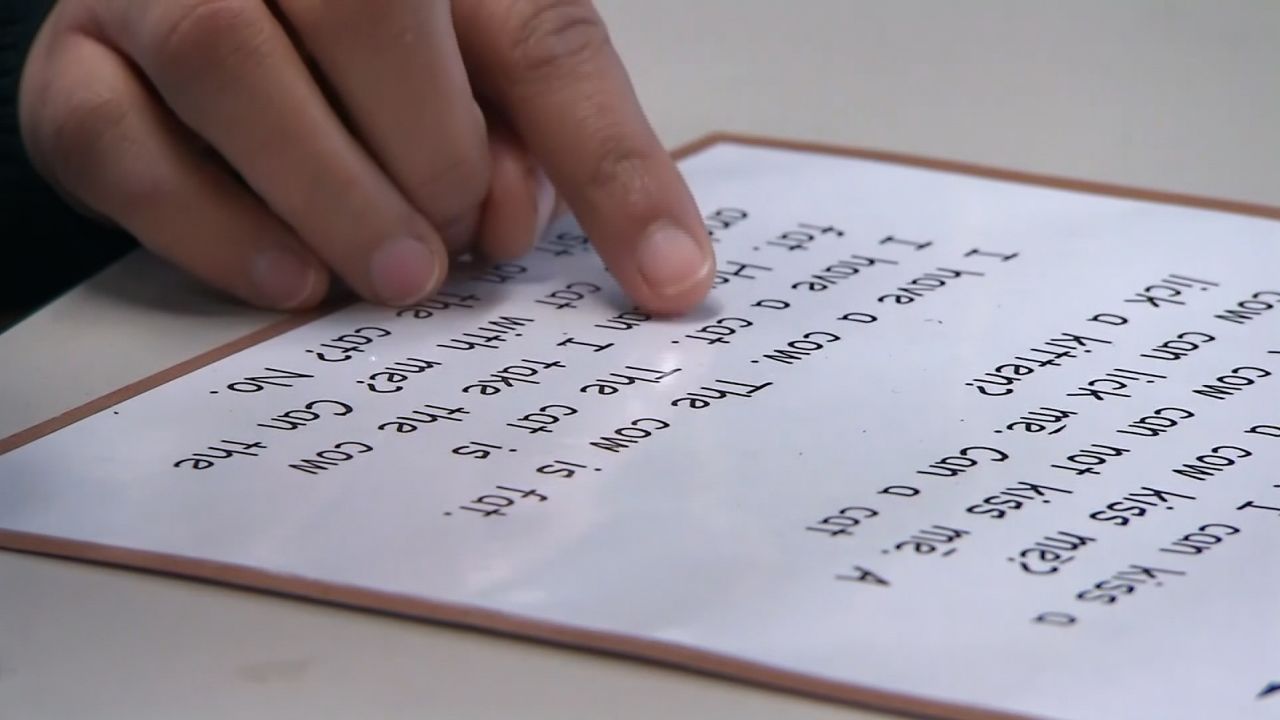 I can kiss a
a cow kiss mē?
cow can not kiss mē. A
cow can lick mē. Can a cat
lick a kitten?
I have a cow. The cow is fat.
I have a cat. The cat is
fat. I take the cow
cat with me? Can the
sit on the cat? No.